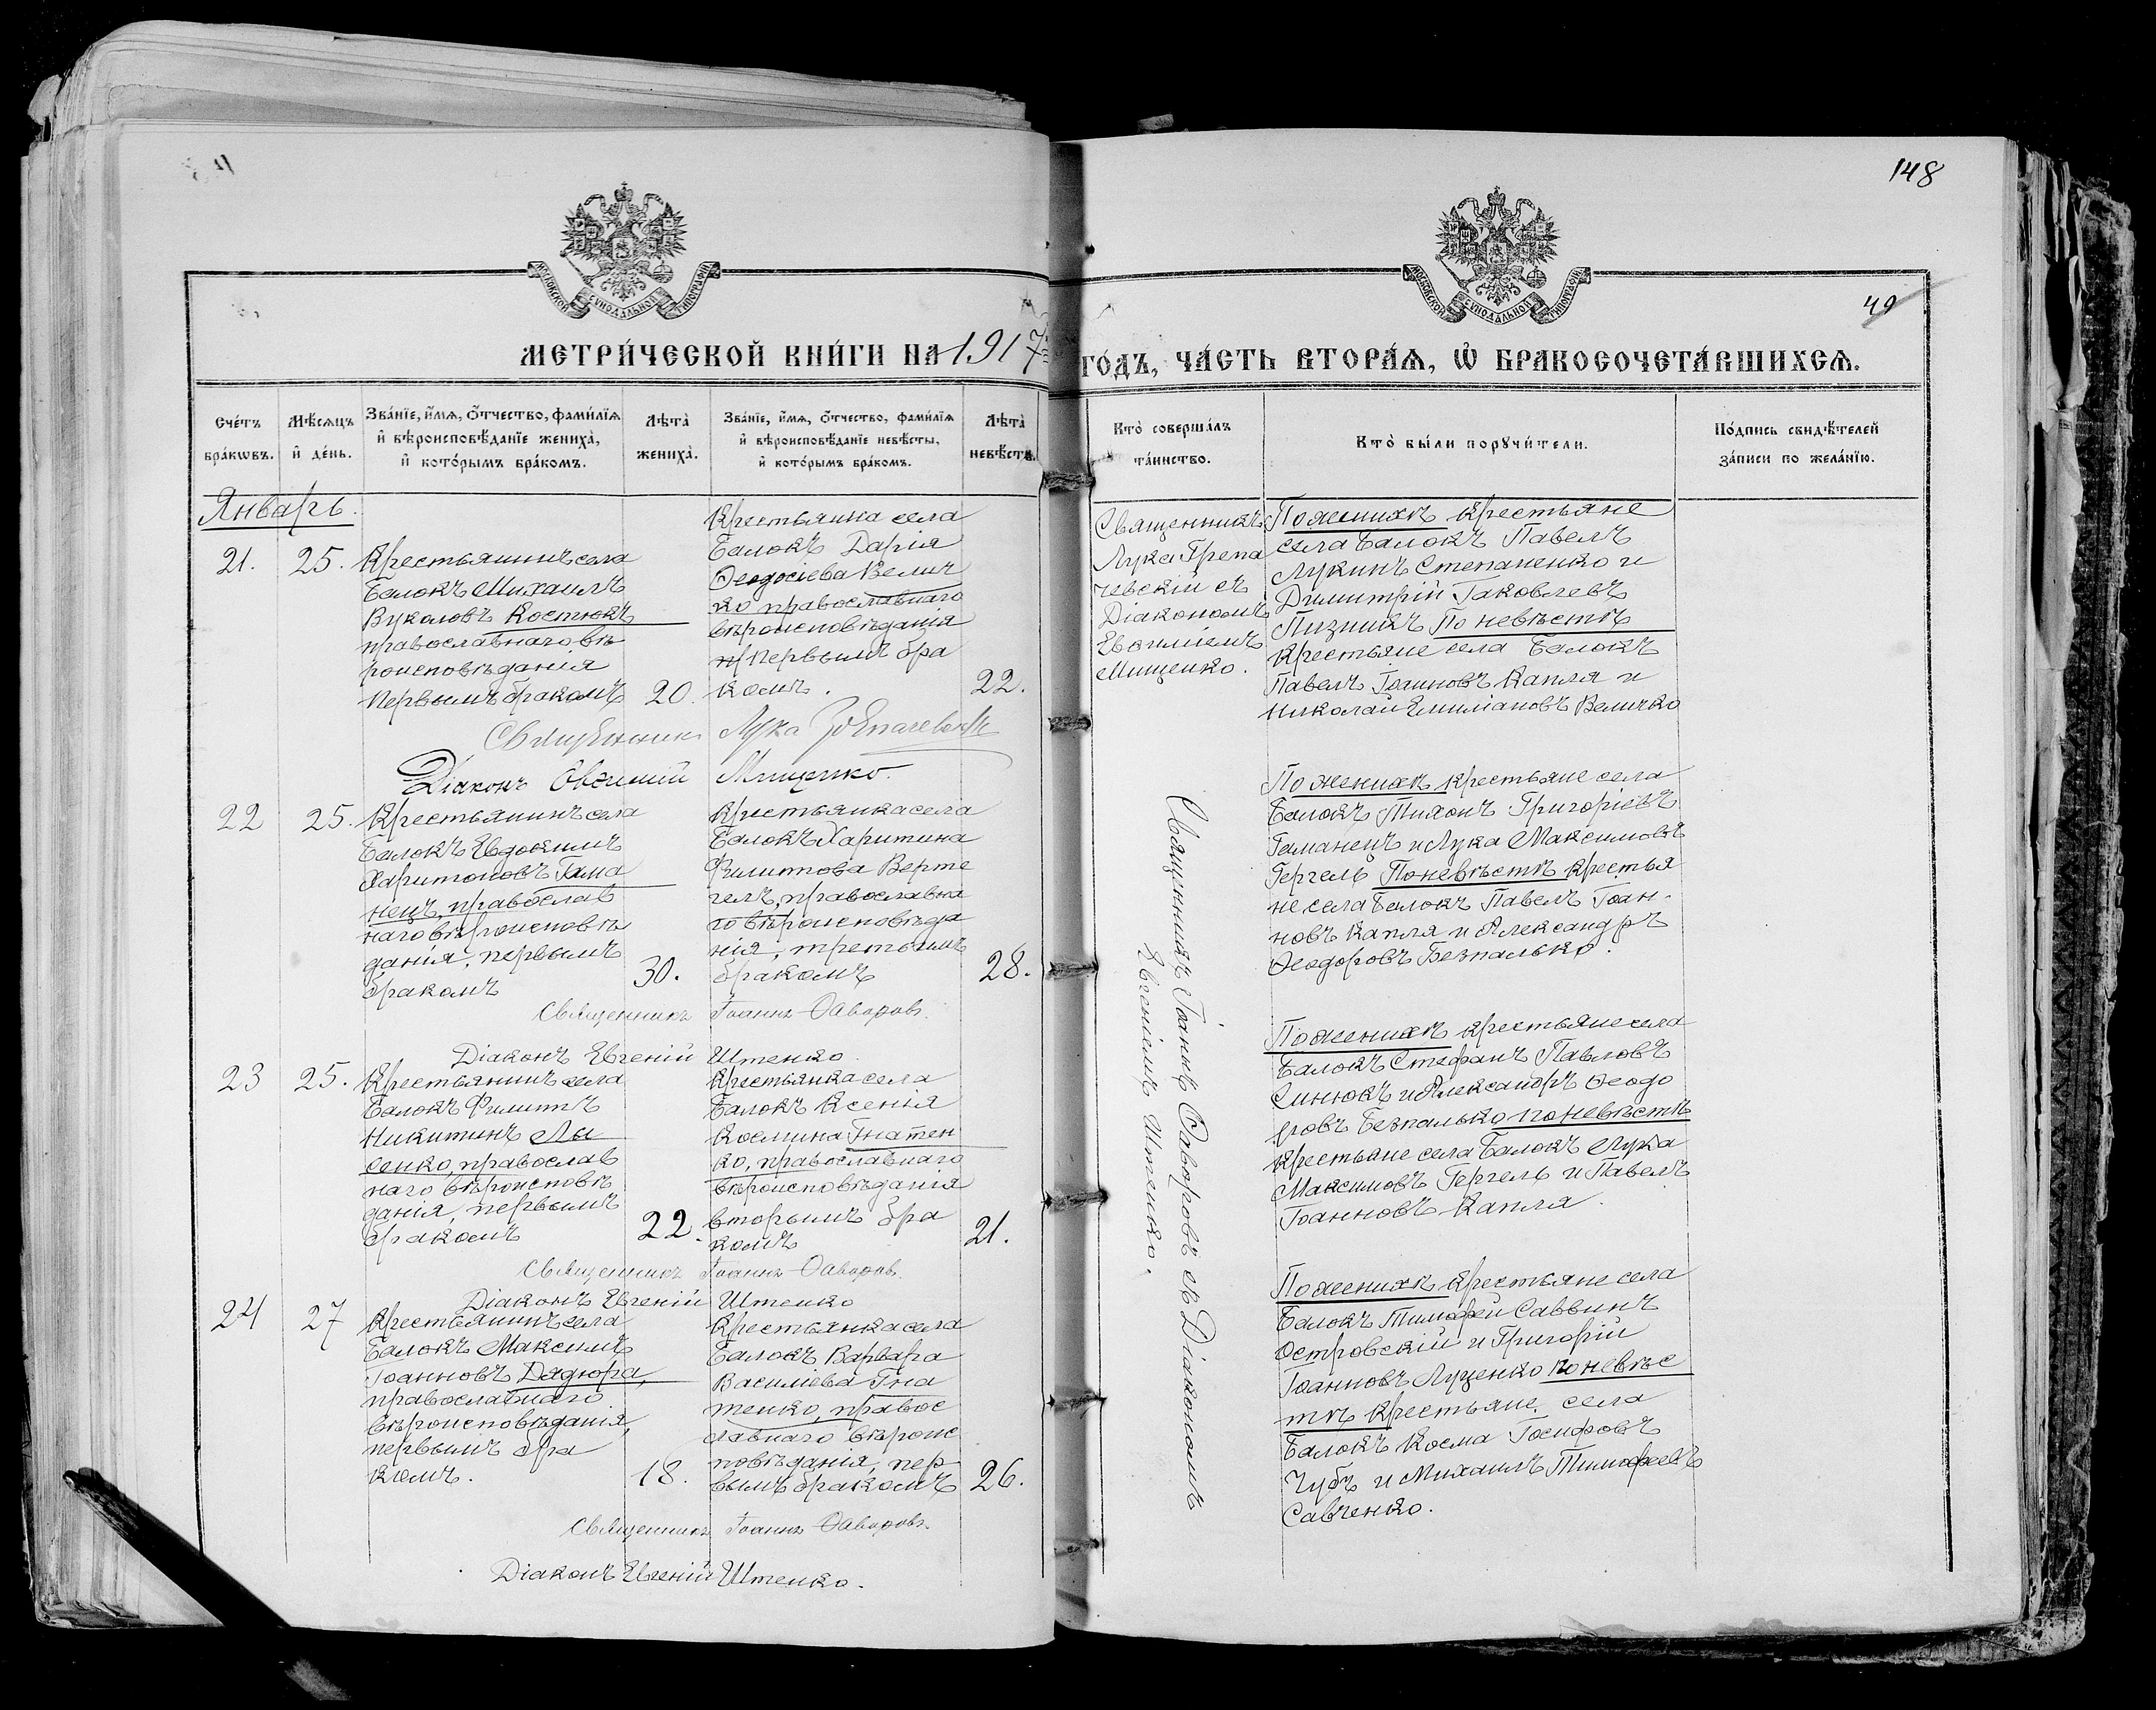 148
49
МОСКОВСКОЙ СѴНОДАЛЬНОЙ ТИПОГРАФІИ
МОСКОВСКОЙ СѴНОДАЛЬНОЙ ТИПОГРАФІИ
МЕТРИ́ЧЕСКОЙ КНИ́ГИ НА 1917 ГО́ДЪ, ЧА́СТЬ ВТОРА́Ѧ, Ѡ҆ БРАКОСОЧЕТА́ВШИХСѦ.
Сче́тъ
бра́кѡвъ.
Мѣ́сѧцъ
и҆ де́нь.
Зва́нїе, и҆́мѧ, ѻ҆́тчество, фами́лїѧ
и҆ вѣроисповѣ́данїе жениха̀,
и҆ кото́рымъ бра́комъ.
Лѣ́та
жениха̀.
Зва́нїе, и҆́мѧ, ѻ҆́тчество, фами́лїѧ
и҆ вѣроисповѣ́данїе невѣ́сты,
и҆ кото́рымъ бра́комъ.
Лѣ́та
невѣ́сты.
Кто̀ соверша́лъ
та́инство.
Кто̀ бы́ли порꙋчи́тели.
По́дпись свидѣ́телей
за́писи по жела́нїю.
Январь.
21.
25.
Крестьянинъ села
Балокъ Михаилъ
Вуколовъ Костюкъ
православнаго вѣ
роисповѣданія
первымъ бракомъ
20.
Крестьянка села
Балокъ Дарія
Ѳеодосіева Велич
ко православнаго
вѣроисповѣданія
первымъ бра
комъ.
22.
Священникъ
Лука Грепа
чевскій съ
Діакономъ
Евѳиміемъ
Мищенко.
По женихѣ крестьяне
села Балокъ Павелъ
Лукинъ Степаненко и
Димитрій Іаковлевъ
Пизникъ По невѣстѣ
крестьяне села Балокъ
Павелъ Іоанновъ Капля и
Николай Емиліановъ Величко
Священникъ Лука Грепачевскій
Діаконъ Евѳимій Мищенко.
22
25.
Крестьянинъ села
Балокъ Евдокимъ
Харитоновъ Гама
нецъ, православ
наго вѣроисповѣ
данія, первымъ
бракомъ
30.
Крестьянка села
Балокъ Харитина
Филиппова Верте
гелъ, православна
го вѣроисповѣда
нія, третьимъ
бракомъ
28.
По женихѣ крестьяне села
Балокъ Тихонъ Григоріевъ
Гаманецъ и Лука Максимовъ
Гергель По невѣстѣ крестья
не села Балокъ Павелъ Іоан-
новъ Капля и Александръ
Ѳеодоровъ Безпалько.
Священникъ Іоаннъ Ѳаворовъ.
Діаконъ Евгеній Штенко
23
25.
Крестьянинъ села
Балокъ Филиппъ
Никитинъ Лы
сенко, православ
наго вѣроисповѣ
данія, первымъ
бракомъ
22.
Крестьянка села
Балокъ Ксенія
Космина Гнатен
ко, православнаго
вѣроисповѣданія
вторымъ бра
комъ
21.
По женихѣ крестьяне села
Балокъ Стефанъ Павловъ
Синюкъ и Александръ Ѳеодо
ровъ Безпалько по невѣстѣ
крестьяне села Балокъ Лука
Максимовъ Гергель и Павелъ
Іоанновъ Капля.
Священникъ Іоаннъ Ѳаворовъ.
Діаконъ Евгеній Штенко
24
27
Крестьянинъ села
Балокъ Максимъ
Іоанновъ Дядюра,
православнаго
вѣроисповѣданія,
первымъ бра
комъ.
18.
Крестьянка села
Балокъ Варвара
Василіева Гна
тенко, правос
лавнаго вѣроис
повѣданія, пер
вымъ бракомъ
26.
По женихѣ крестьяне села
Балокъ Тимофей Саввинъ
Островскій и Григорій
Іоанновъ Луценко по невѣс
тѣ крестьяне села
Балокъ Косма Іосифовъ
Чубъ и Михаилъ Тимофеевъ
Савченко.
Священникъ Іоаннъ Ѳаворовъ.
Діаконъ Евгеній Штенко.
Священникъ Іоаннъ Ѳаворовъ съ Діакономъ
Евгеніемъ Штенко.